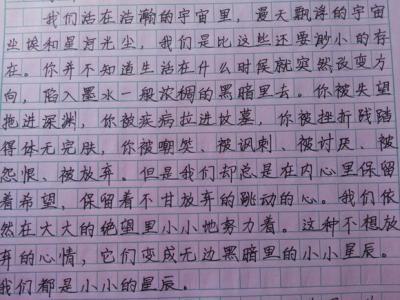 我们活在浩瀚的宇宙里，漫天飘浮的宇宙
尘埃和星河光尘，我们是比这些还要渺小的存
在。你并不知道生活在什么时候就突然改变方
向，陷入墨水一般浓稠的黑暗里去。你被失望
拖进深渊，你被疾病拉进坟墓，你被挫折践踏
得体无完肤，你被嘲笑、被讽刺、被讨厌、被
怨恨、被放弃。但是我们却总是在内心里保留
着希望，保留着不甘放弃的跳动的心。我们依
然在大大的绝望里小小地努力着。这种不想放
弃的心情，它们变成无边黑暗里的小小星辰。
我们都是小小的星辰。